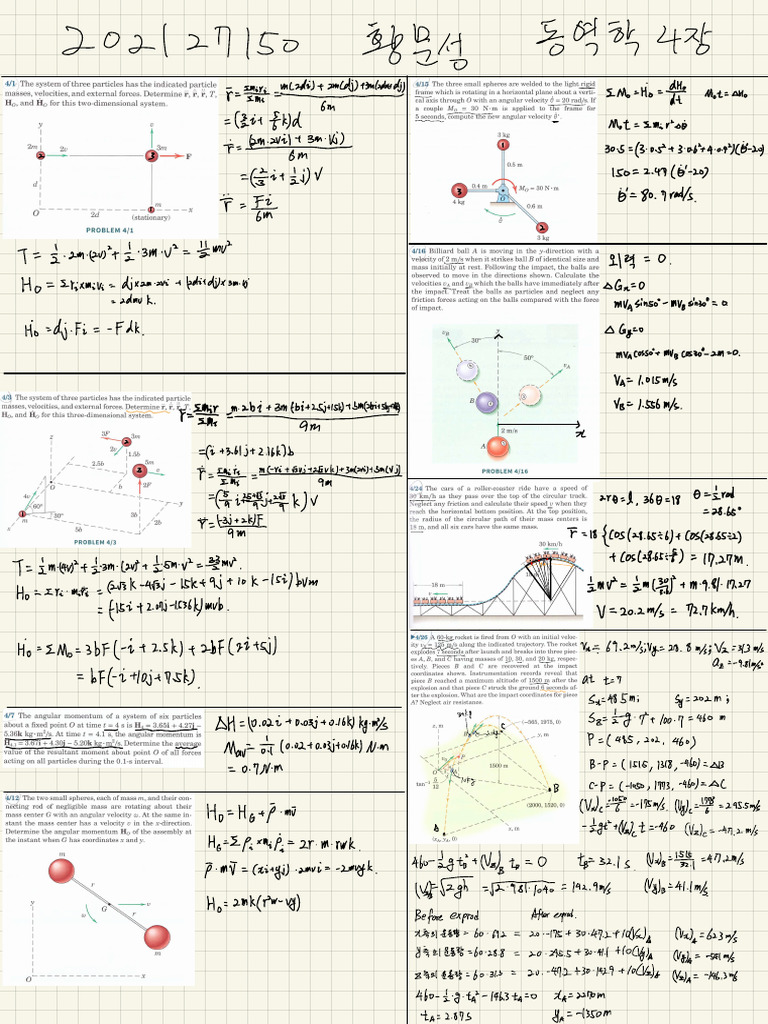 202127150 황문성 동역학 4장
4/1 The system of three particles has the indicated particle
masses, velocities, and external forces. Determine r̄, ṙ̄, r̈̄, T,
H_O, and Ḣ_O for this two-dimensional system.
y
2m
2v
3m
F
d
O
2d
m
(stationary)
x
PROBLEM 4/1
6m
= (3/2 i + 5/6 k) d
= (2m·2vi + 3m·vj) / 6m
= (2/3 i + 1/2 j) v
r̈ = Fi / 6m
T = 1/2·2m·(2v)² + 1/2·3m·v² = 11/2 mv²
= 2dmvk.
Ḣo = dj·Fi = -Fdk.
4/3 The system of three particles has the indicated particle
masses, velocities, and external forces. Determine r̄, ṙ̄, r̈̄, T,
H_O, and Ḣ_O for this three-dimensional system.
z
3F
3m
2v
1.5b
2.5b
5m
v
2F
4v
60°
30°
2b
2b
m
x
y
PROBLEM 4/3
9m
= (i + 3.61j + 2.16k) b
r̈ = (-3j + 2k)F / 9m
Ḣo = ΣMo = 3bF(-i + 2.5k) + 2bF(2i + 5j)
= bF(-i + 10j + 7.5k)
4/7 The angular momentum of a system of six particles
about a fixed point O at time t = 4 s is H₄ = 3.65i + 4.27j −
5.36k kg·m²/s. At time t = 4.1 s, the angular momentum is
H₄.₁ = 3.67i + 4.30j − 5.20k kg·m²/s. Determine the average
value of the resultant moment about point O of all forces
acting on all particles during the 0.1-s interval.
ΔH = (0.02i + 0.03j + 0.16k) kg·m²/s
Mav = 1/0.1 (0.02 + 0.03j + 0.16k) N·m
= 0.7 N·m
4/12 The two small spheres, each of mass m, and their con-
necting rod of negligible mass are rotating about their
mass center G with an angular velocity ω. At the same in-
stant the mass center has a velocity v in the x-direction.
Determine the angular momentum H_O of the assembly at
the instant when G has coordinates x and y.
m
r
y
G
v
ω
r
m
O
x
Ho = HG + ρ̄·mv̄
= 2r·m·rωk.
ρ̄·mv̄ = (xi+yj)·2mvi = -2mvyk.
Ho = 2mk(r²ω - vy)
4/15 The three small spheres are welded to the light rigid
frame which is rotating in a horizontal plane about a verti-
cal axis through O with an angular velocity θ̇ = 20 rad/s. If
a couple M_O = 30 N·m is applied to the frame for
5 seconds, compute the new angular velocity θ̇′.
3 kg
0.5 m
0.4 m
M_O = 30 N·m
4 kg
O
θ̇
0.6 m
3 kg
ΣMo = Ḣo = dHo/dt Mot = ΔHo
Mot = Σmi r²Δθ̇
30·5 = (3·0.5² + 3·0.6² + 4·0.4²)(θ̇'-20)
150 = 2.47(θ̇'-20)
θ̇' = 80.7 rad/s.
4/16 Billiard ball A is moving in the y-direction with a
velocity of 2 m/s when it strikes ball B of identical size and
mass initially at rest. Following the impact, the balls are
observed to move in the directions shown. Calculate the
velocities v_A and v_B which the balls have immediately after
the impact. Treat the balls as particles and neglect any
friction forces acting on the balls compared with the force
of impact.
y
v_B
30°
50°
v_A
B
2 m/s
A
x
PROBLEM 4/16
외력 = 0.
ΔGx=0
mVA sin50° - mVB sin30° = 0
ΔGy=0
mVA cos50° + mVB cos30° - 2m = 0.
VA = 1.015 m/s
VB = 1.556 m/s.
4/24 The cars of a roller-coaster ride have a speed of
30 km/h as they pass over the top of the circular track.
Neglect any friction and calculate their speed v when they
reach the horizontal bottom position. At the top position,
the radius of the circular path of their mass centers is
18 m, and all six cars have the same mass.
30 km/h
18 m
v
2rθ = l, 36θ = 18 θ = 1/2 rad
= 28.65°
= 17.27m
1/2mv² = 1/2m(30/3.6)² + m·9.81·17.27
V = 20.2 m/s = 72.7 km/h.
4/26 A 60-kg rocket is fired from O with an initial veloc-
ity v₀ = 125 m/s along the indicated trajectory. The rocket
explodes 7 seconds after launch and breaks into three piec-
es A, B, and C having masses of 10, 30, and 20 kg, respec-
tively. Pieces B and C are recovered at the impact
coordinates shown. Instrumentation records reveal that
piece B reached a maximum altitude of 1500 m after the
explosion and that piece C struck the ground 6 seconds af-
ter the explosion. What are the impact coordinates for piece
A? Neglect air resistance.
C
(−565, 1975, 0)
y, m
1500 m
O
B
(2000, 1520, 0)
A
(x_A, y_A, 0)
x, m
at t = 7
Sx = 485 m; Sy = 202 m;
Sz = -1/2·g·7² + 100·7 = 460 m
P = (485, 202, 460)
B-P = (1515, 1318, -460) = ΔB
C-P = (-1050, 1773, -460) = ΔC
(Vz)c = -47.2 m/s.
460 - 1/2 g tB² + (Vz)B tB = 0 tB = 32.1 s
(Vz)B = √2gh = √2·9.81·1040 = 142.9 m/s (Vy)B = 41.1 m/s.
460 - 1/2·g·tA² - 146.3 tA = 0 xA = 2270m
tA = 2.87s yA = -1350m